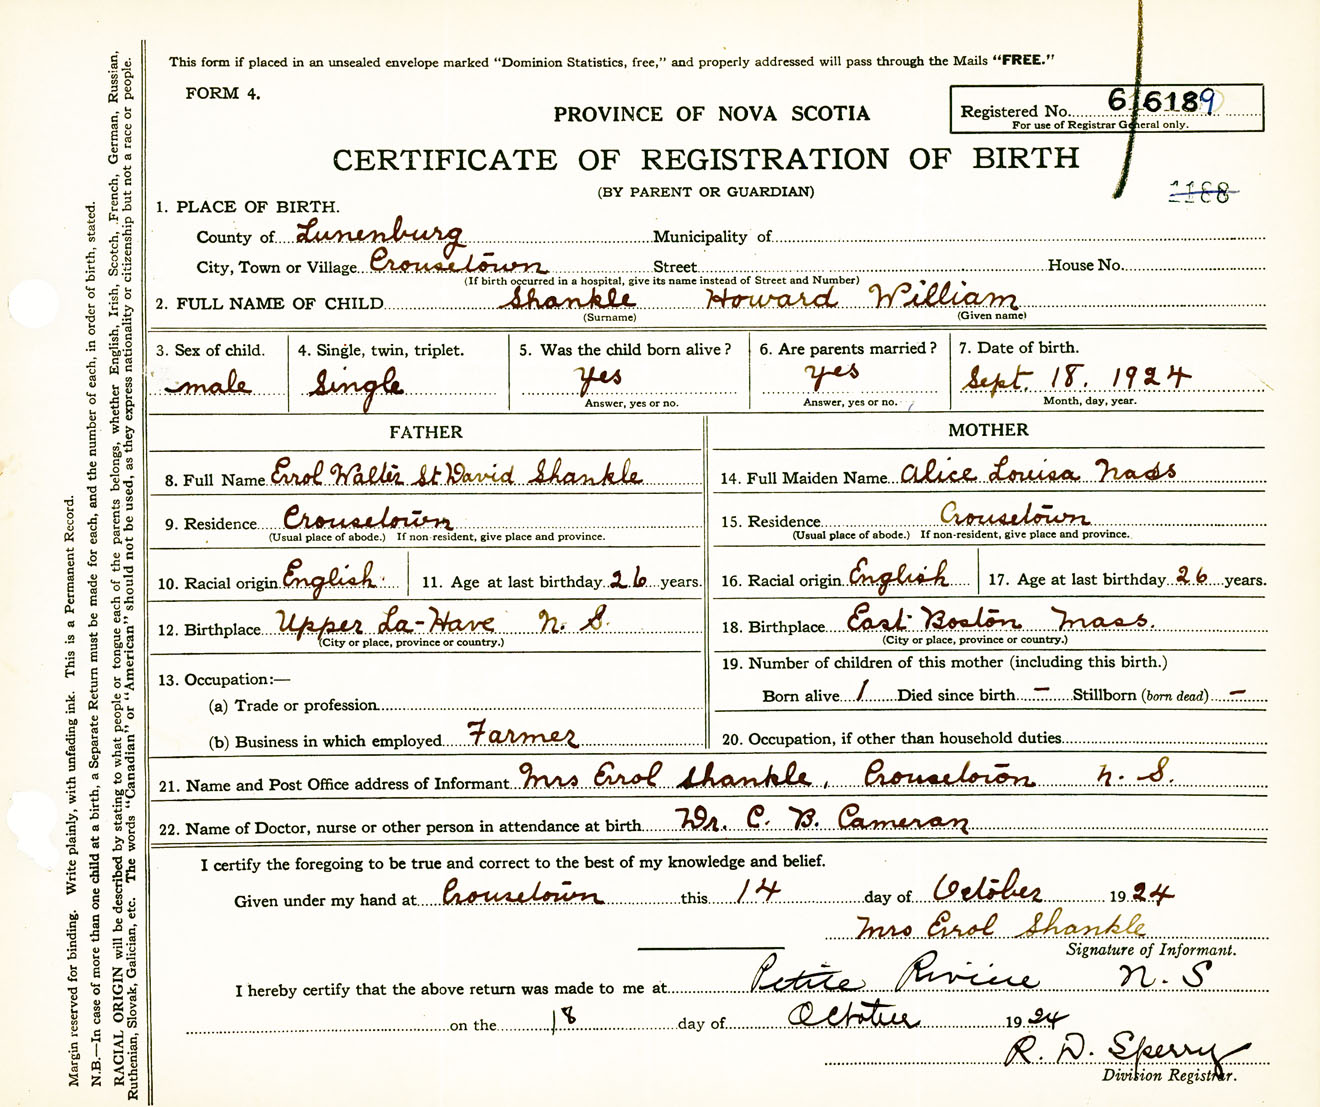 This form if placed in an unsealed envelope marked "Dominion Statistics, free," and properly addressed will pass through the Mails "FREE."
FORM 4.
PROVINCE OF NOVA SCOTIA
Registered No. 616189
For use of Registrar General only.
CERTIFICATE OF REGISTRATION OF BIRTH
(BY PARENT OR GUARDIAN)
1188
1. PLACE OF BIRTH.
County of Lunenburg Municipality of
City, Town or Village Crousetown Street House No.
(If birth occurred in a hospital, give its name instead of Street and Number)
2. FULL NAME OF CHILD Shankle Howard William
(Surname) (Given name)
3. Sex of child. 4. Single, twin, triplet. 5. Was the child born alive? 6. Are parents married? 7. Date of birth.
male Single yes yes Sept. 18. 1924
Answer, yes or no. Answer, yes or no. Month, day, year.
FATHER MOTHER
8. Full Name Errol Walter St David Shankle 14. Full Maiden Name Alice Louisa Nass
9. Residence Crousetown 15. Residence Crousetown
(Usual place of abode.) If non-resident, give place and province. (Usual place of abode.) If non-resident, give place and province.
10. Racial origin English 11. Age at last birthday 26 years. 16. Racial origin English 17. Age at last birthday 26 years.
12. Birthplace Upper La-Have N. S. 18. Birthplace East Boston Mass.
(City or place, province or country.) (City or place, province or country.)
13. Occupation:— 19. Number of children of this mother (including this birth.)
(a) Trade or profession Born alive 1 Died since birth – Stillborn (born dead) –
(b) Business in which employed Farmer 20. Occupation, if other than household duties
21. Name and Post Office address of Informant Mrs Errol Shankle, Crousetown N. S.
22. Name of Doctor, nurse or other person in attendance at birth Dr. C. B. Cameran
I certify the foregoing to be true and correct to the best of my knowledge and belief.
Given under my hand at Crousetown this 14 day of October 1924
Mrs Errol Shankle
Signature of Informant.
I hereby certify that the above return was made to me at Petite Riviere N. S
on the 18 day of October 1924
R. D. Sperry
Division Registrar.
Margin reserved for binding. Write plainly, with unfading ink. This is a Permanent Record.
N.B.—In case of more than one child at a birth, a Separate Return must be made for each, and the number of each, in order of birth, stated.
RACIAL ORIGIN will be described by stating to what people or tongue each of the parents belongs, whether English, Irish, Scotch, French, German, Russian,
Ruthenian, Slovak, Galician, etc. The words "Canadian" or "American" should not be used, as they express nationality or citizenship but not a race or people.